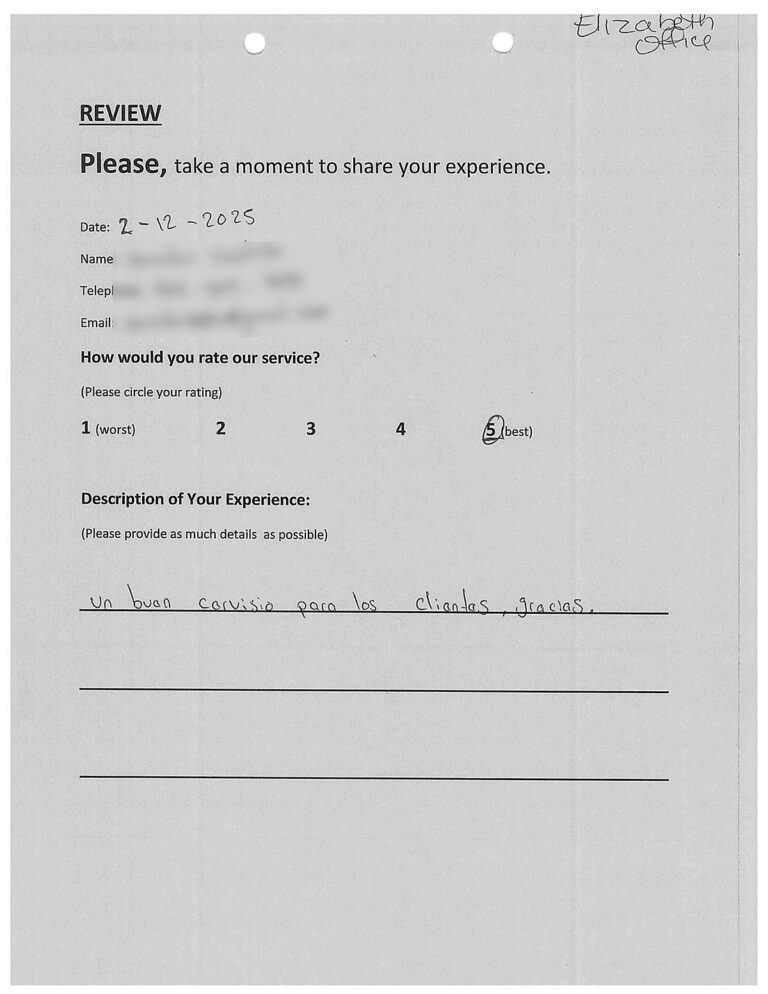 Elizabeth
Office
REVIEW
Please, take a moment to share your experience.
Date: 2-12-2025
Name
Telep
Email:
How would you rate our service?
(Please circle your rating)
1 (worst) 2 3 4 5 (best)
Description of Your Experience:
(Please provide as much details as possible)
un buen cervisio para los clientes, gracias.